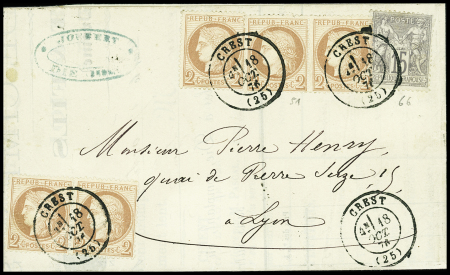 REPUB·FRANC REPUB·FRANC REPUB·FRANC POSTE
2 C·POSTES·2
CREST
18
OCT
76
(25)
CREST
18
OCT
76
(25)
51
66
Monsieur Pierre Henry,
quai de Pierre Scize 15
à Lyon
REPUB·FRANC REPUB·FRANC
2
2
CREST
18
OCT
(25)
CREST
18
OCT
76
(25)